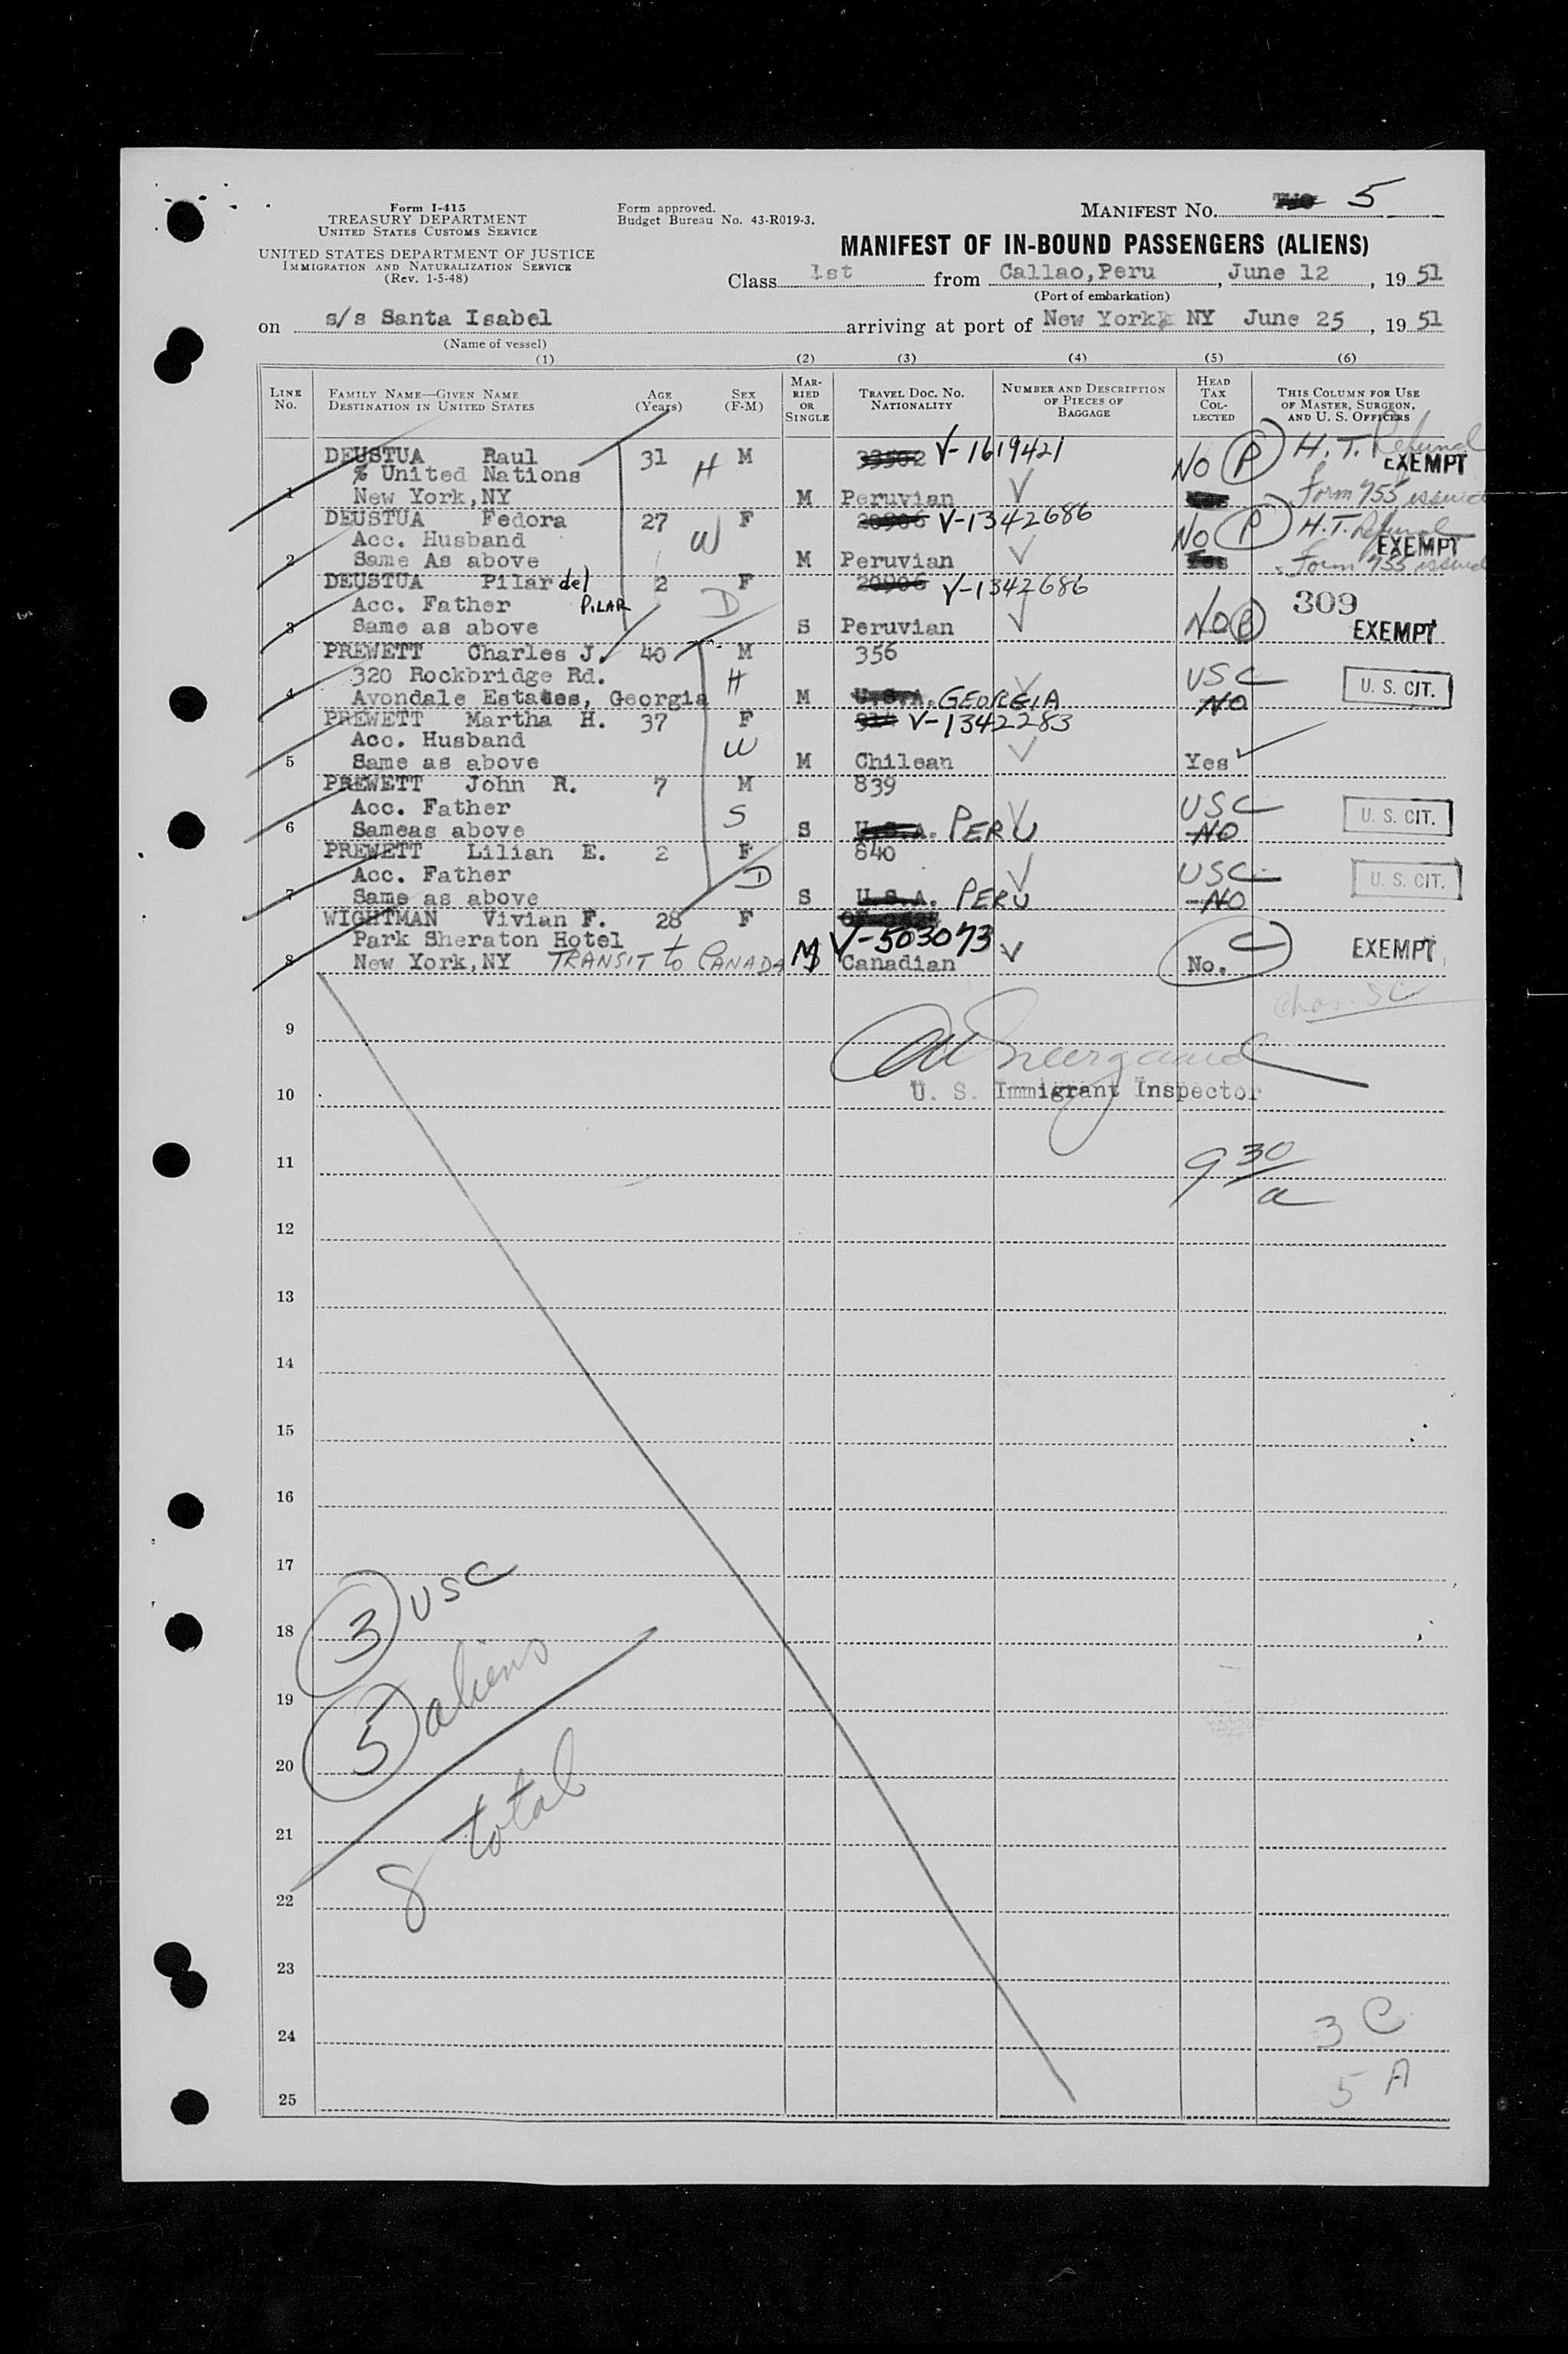 Form I-415
TREASURY DEPARTMENT
UNITED STATES CUSTOMS SERVICE
UNITED STATES DEPARTMENT OF JUSTICE
IMMIGRATION AND NATURALIZATION SERVICE
(Rev. 1-5-48)
Form approved.
Budget Bureau No. 43-R019-3.
MANIFEST No. 5
MANIFEST OF IN-BOUND PASSENGERS (ALIENS)
Class 1st from Callao,Peru, June 12, 1951
(Port of embarkation)
on s/s Santa Isabel arriving at port of New York NY June 25, 1951
(Name of vessel)
(1) (2) (3) (4) (5) (6)
LINE No. FAMILY NAME—GIVEN NAME DESTINATION IN UNITED STATES AGE (Years) SEX (F-M) MARRIED OR SINGLE TRAVEL DOC. NO. NATIONALITY NUMBER AND DESCRIPTION OF PIECES OF BAGGAGE HEAD TAX COLLECTED THIS COLUMN FOR USE OF MASTER, SURGEON, AND U. S. OFFICERS
DEUSTUA Raul 31 H M 33502 V-1619421 NO P H.T. Refund EXEMPT
% United Nations
1 New York,NY M Peruvian V Form 755 issued
DEUSTUA Fedora 27 W F 20906 V-1342686 NO P H.T. Refund EXEMPT
Acc. Husband
2 Same As above M Peruvian V Yes Form 755 issued
DEUSTUA Pilar del 2 F 20906 V-1342686
Acc. Father PILAR D 309
3 Same as above S Peruvian V NO P EXEMPT
PREWETT Charles J. 40 M 356
320 Rockbridge Rd. H USC U. S. CIT.
4 Avondale Estates, Georgia M U.S.A. GEORGIA V NO
PREWETT Martha H. 37 F V-1342283
Acc. Husband W
5 Same as above M Chilean V Yes
PREWETT John R. 7 M 839
Acc. Father S USC U. S. CIT.
6 Sameas above S U.S.A. PERU V NO
PREWETT Lilian E. 2 F 840
Acc. Father D USC U. S. CIT.
7 Same as above S U.S.A. PERU V NO
WIGHTMAN Vivian F. 28 F
Park Sheraton Hotel V-503073 C EXEMPT
8 New York,NY TRANSIT to CANADA M Canadian V No.
9
U. S. Immigrant Inspector
10
11 9 30/a
12
13
14
15
16
17
3 USC
18
5 aliens
19
20
8 total
21
22
23
24 3 C
25 5 A